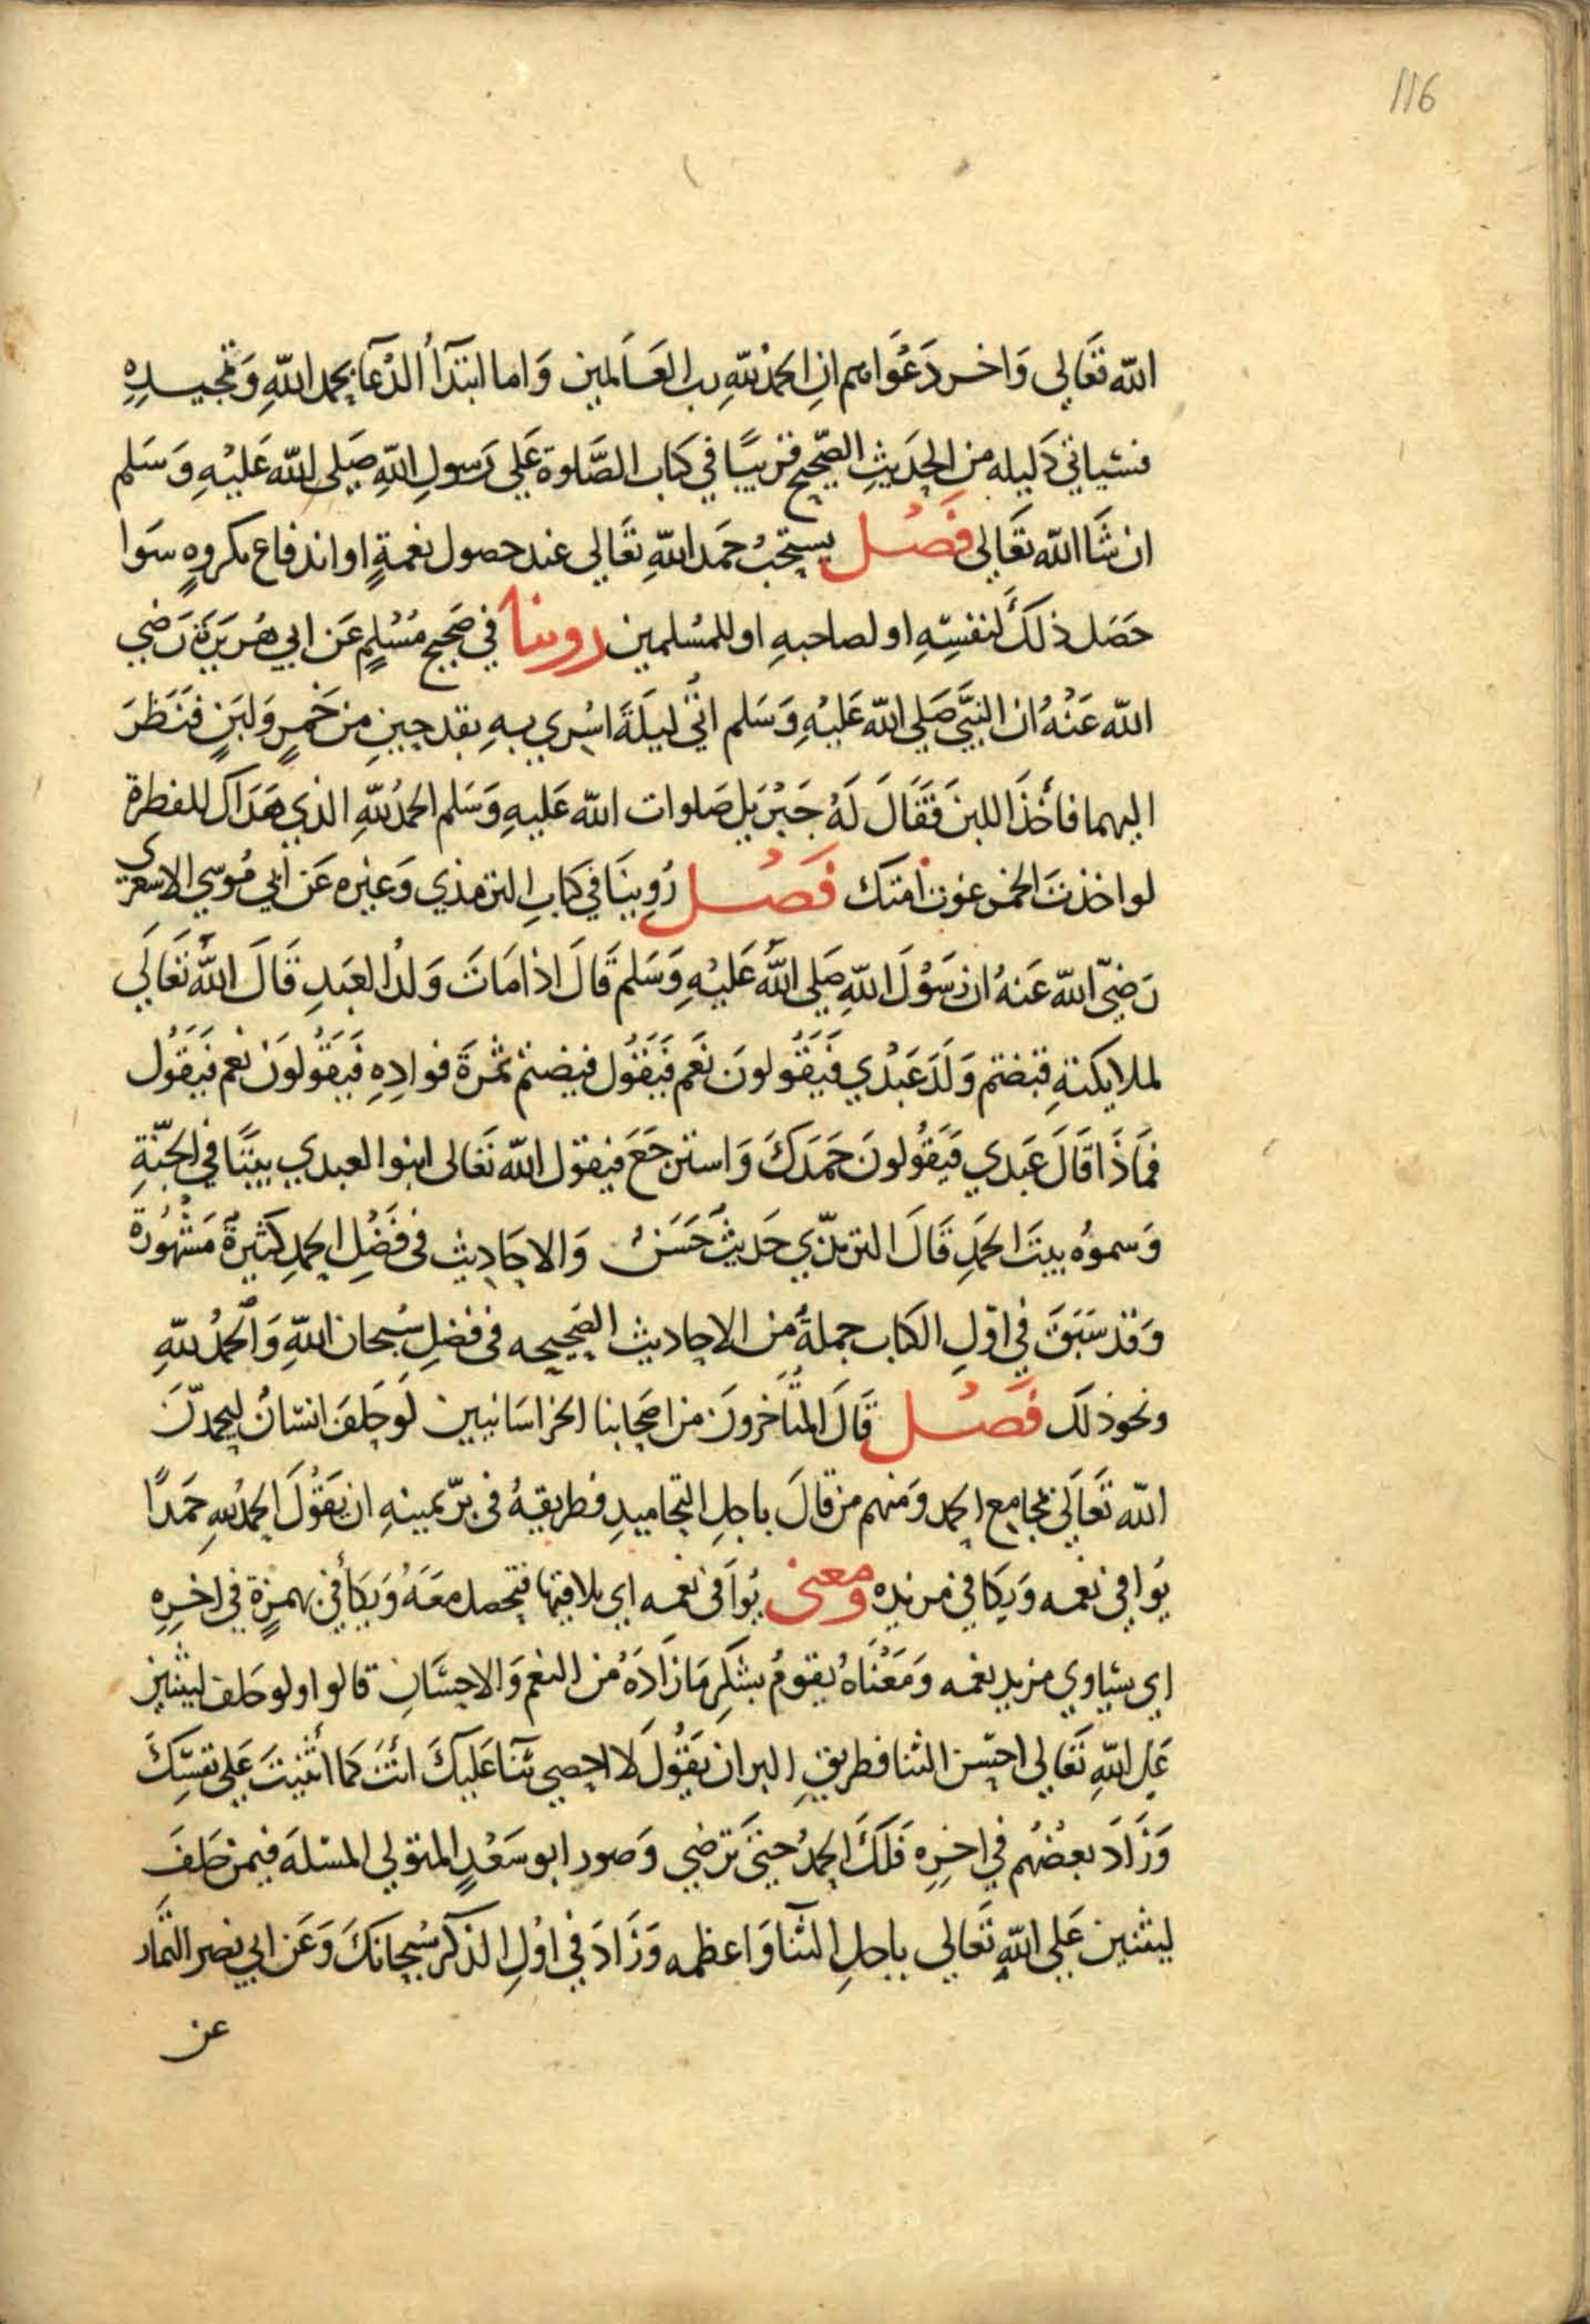 116
الله تَعَالى وَاخر دَعْوَاهم ان الحمدُ للّهِ رب العَالمين وَاما ابتدَاُ الدّعَآ بحمد اللّهِ وَتمجيدِهِ
فسَياتي دَليله من الحدَيثِ الصّحيح قريبًا في كتاب الصَّلوة عَلي رَسولِ اللّهِ صَلى الله عَليْهِ وَسَلم
ان شَا الله تَعَالى فَصْل يستحبُ حمَد اللّهِ تعَالى عند حصول نعمةٍ او اندفاع مكروهٍ سَوا
حَصَل ذلكَ لنفسِهِ او لصاحبهِ او للمسُلمين روينا في صَحيح مسُلمٍ عَن ابي هُريرَة رَضي
الله عَنْهُ ان النبيَّ صَلي الله عَليْهِ وَسَلم اتي ليلَةَ اسْري بهِ بقدحين من خَمرٍ وَلبَنٍ فنَظرَ
اليهما فأخَذَ اللبن فَقَالَ لَهُ جبْريل صَلوات الله عَليهِ وَسَلم الحمدُ للّهِ الذي هَدَاك للفطرة
لو اخذتَ الخمر غوت امتك فَصْل رُوينَا في كتابِ الترمذي وَغيره عَن ابي مُوسي الاسعري
رَضيَ الله عَنهُ ان رَسُوْلَ اللّهِ صَلى اللّهُ عَليْهِ وَسَلم قَالَ اذا مَاتَ وَلدُ العَبدِ قَالَ اللّهُ تَعَالَي
لملايكتهِ قبضتم وَلَدَ عَبْدي فَيَقُولونَ نَعَم فَيَقُول قبضتم ثمرَةَ فوادِهِ فَيَقُولوَنْ نعم فيَقُول
فمَاذَا قَالَ عَبدي فيَقُولونَ حَمَدَكَ وَاسترجَعَ فيقول الله تَعَالى ابنوا لعبدي بيتًا في الجنّةِ
وَسموُه بيتَ الحمَدِ قَالَ الترمذّي حَديثٌ حَسَنٌ وَالاحَاديث في فَضْلِ الحمدِ كَثيرةٌ مَشْهُورة
وَقد سَبَقَ في اوّلِ الكتاب جملةٌ من الاحاديث الصَحيحه في فضلِ سُبحان اللّهِ وَالحمُدُ للّهِ
ونحو ذلَك فَصْل قَالَ المتَأخرونَ من اصَحابنا الخراسَانيين لَو حَلفَ انسَانٌ ليحمدَّنَ
الله تَعَالَي بمجامِع الحمد وَمنهم من قالَ باجلِ التحاميدِ فطريقهُ في برّ يمينهِ ان يَقوْلَ الحمدُ للهِ حَمدًا
يُوافي نعمه وَيكافي مزيده ومعنى يُوافى نعمه اي يلاقيها فتحصل معَهُ وَيكَأفئ بهمزةٍ في اخرِهِ
اي يسَاوي مزيد نعمه وَمَعْنَاهُ يقومُ بشكرِ مَا زَادَهُ من النعم وَالاحسَانِ قالوا ولو حَلف ليثنين
عَلى اللّهِ تَعَالى احسن الثنا فطريق البر ان يَقُولَ لَا احصي ثَنَا عَليكَ انَت كمَا أثْنيتَ عَلي نَفسِكَ
وَزَادَ بعضُهُم في اخِرِه فَلَكَ الحمدُ حتيَّ تَرضي وَصور ابو سَعْدٍ المتولي المسْلهَ فيمن حَلفَ
ليثنين عَلي اللّهِ تَعالي باجلِ الثنَا وَاعظمه وَزَادَ في اوْلِ الذكر سُبحانكَ وَعَن ابي نصر التمَّار
عن